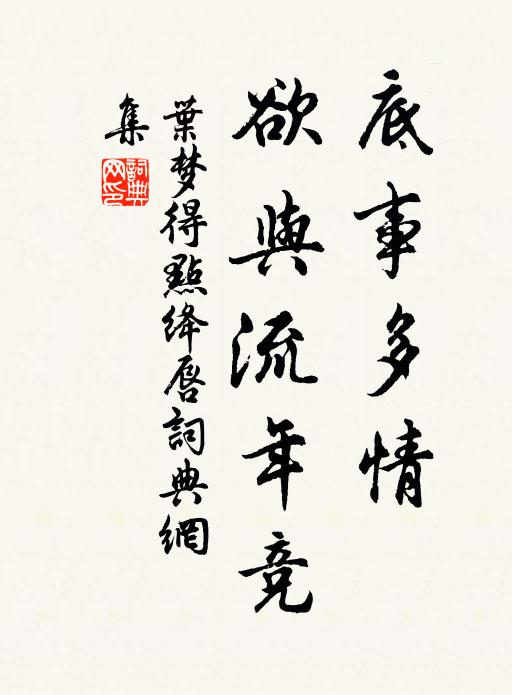 底事多情
欲與流年競
葉梦得點绛唇詞典網
集
詞典网印